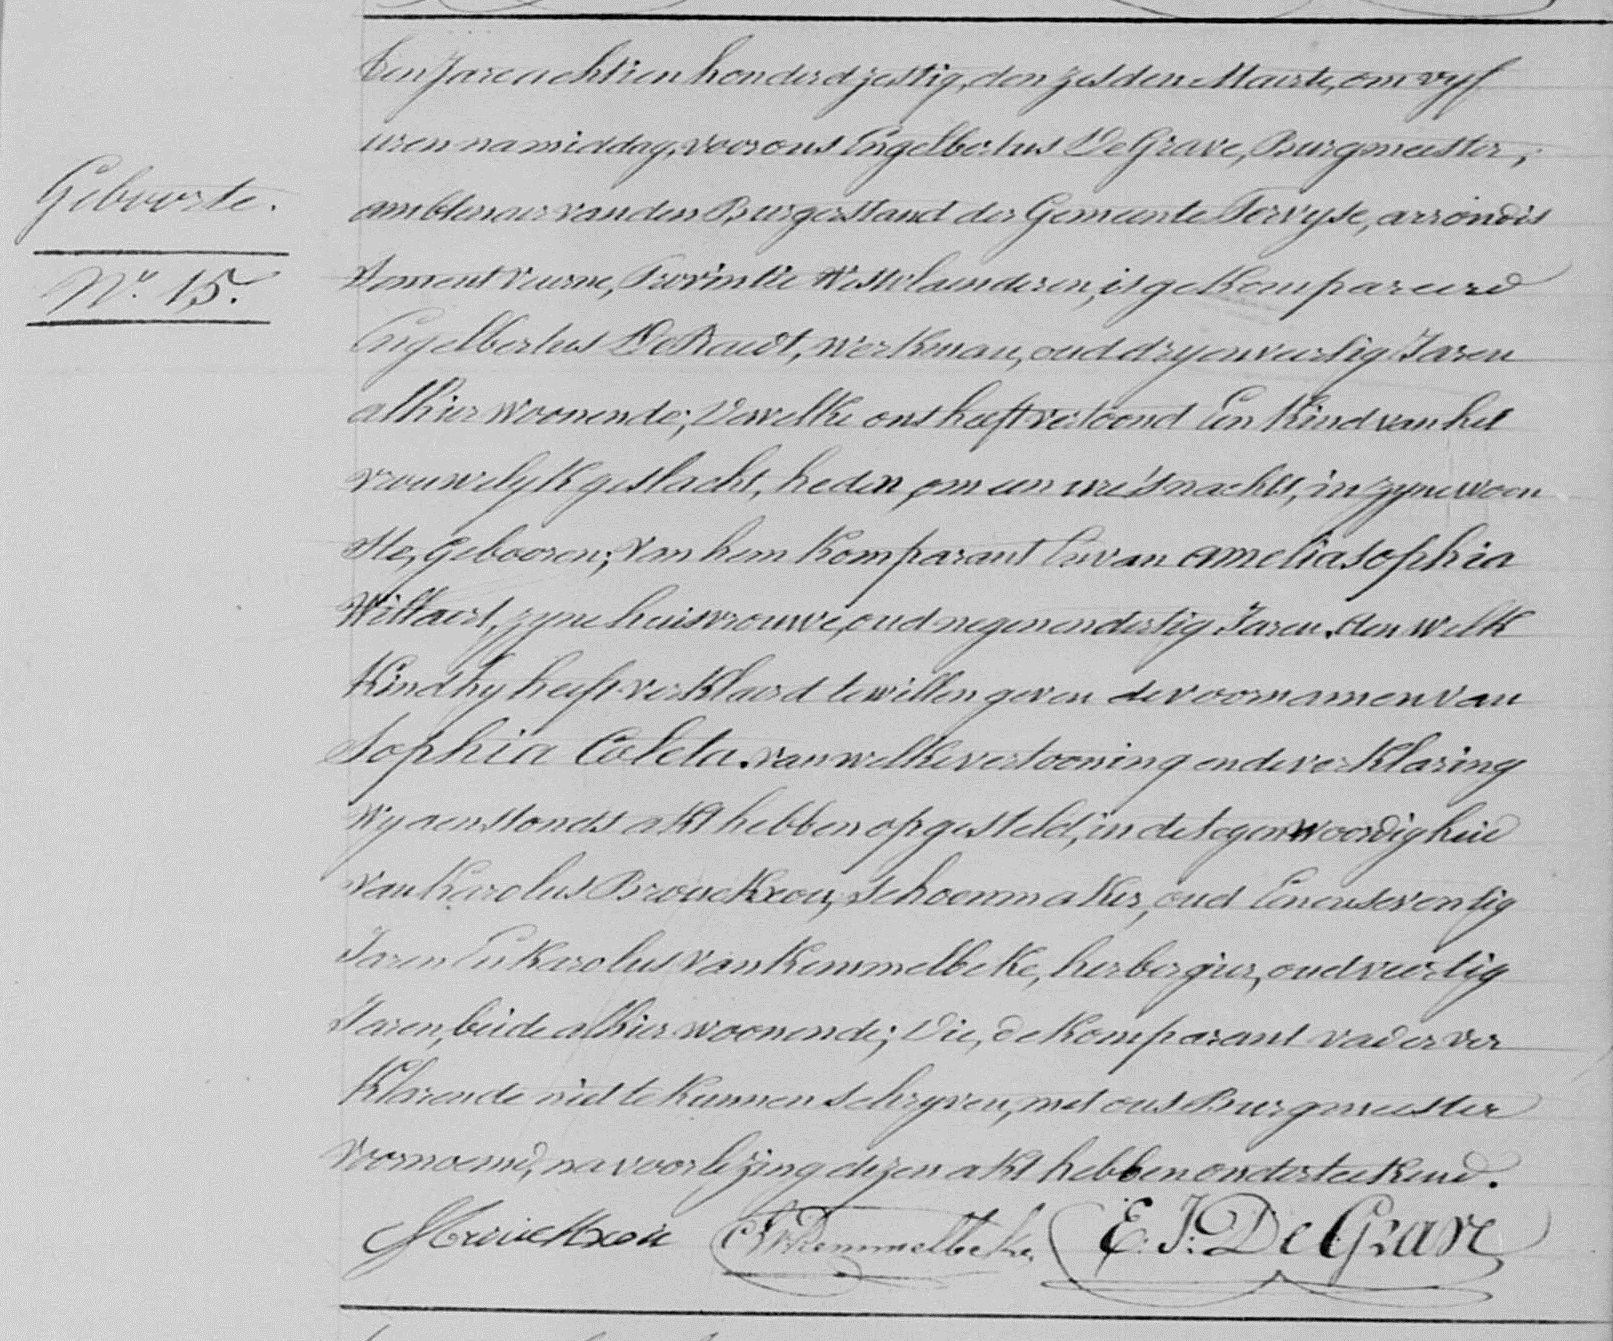 Geboorte.
N° 15.
Ten Jare achtien honderd zestig, den zesden Maerte, om vyf
uren namiddag, voor ons Engelbertus De Grave, Burgmeester,
ambtenaer van den Burgerstand der Gemeente Pervyse, arrondis
sement Veurne, Provintie Westvlaenderen, is gekompareerd
Engelbertus De Raedt, werkman, oud dryenveertig Jaren
alhier woonende; Dewelke ons heeft vertoond Een Kind van het
vrouwelyk geslacht, heden, om een ure 's nachts, in zyne woon
ste, gebooren; van hem Komparant En van amelia sophia
Willaert, zyne huisvrouwe, oud negenendertig Jaren. Aen welk
Kind hy heeft verklaerd te willen geven de voornamen van
Sophia Coleta. van welke vertooning en de verklaring
Wy aenstonds akt hebben opgesteld, in de tegenwoordigheid
van Karolus Brouckxon, schoenmaker, oud Eenenseventig
Jaren En Karolus Van Kemmelbeke, herbergier, oud veertig
Jaren, beide alhier woonende; Die, de Komparant vader ver
klarende niet te kunnen schryven, met ons Burgmeester
voornoemd, na voorlezing dezen akt hebben onderteekend.
Brouckxon Kemmelbeke E. J. De Grave